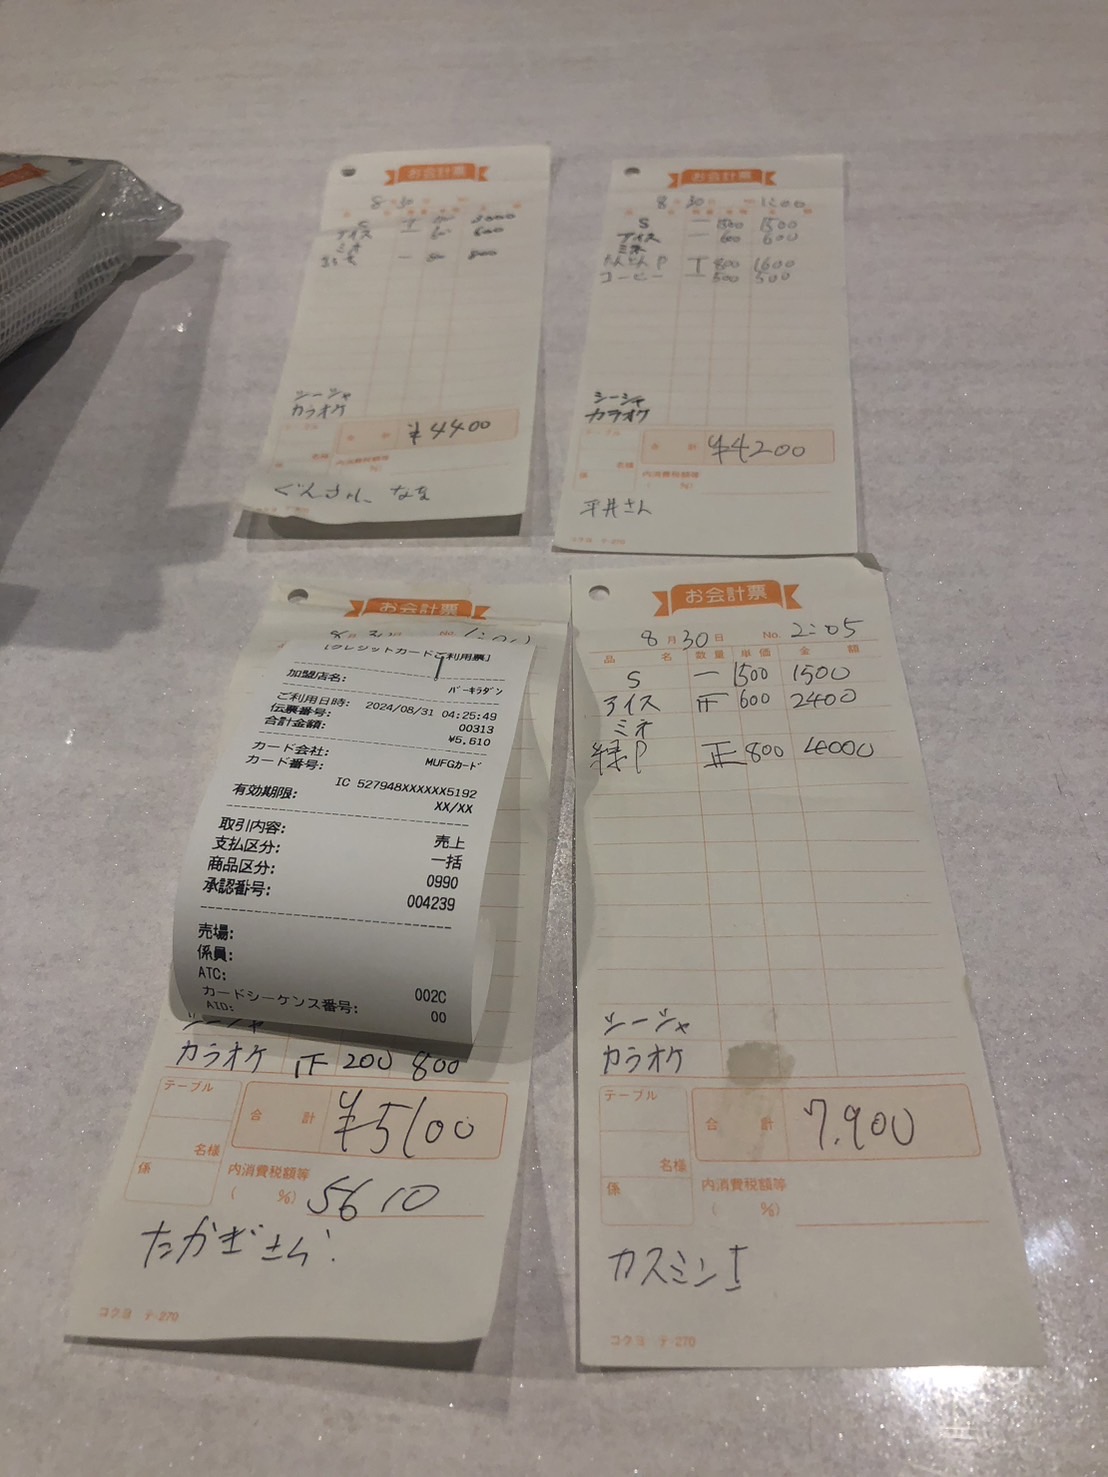 お会計票
8 30
S T 3000
アイス 一 600 600
ミネ
一 800 800
シーシャ
カラオケ
テーブル
合 計 ¥4400
名様
内消費税額等
係 ( %)
ぐんさん、なな
お会計票
8 30 1:00
S 一 1500 1500
アイス 一 600 600
ミネ
たんたんP T 800 1600
コーヒー 一 500 500
シーシャ
カラオケ
テーブル
合 計 ¥4200
名様
内消費税額等
係 ( %)
平井さん
コクヨ テ-270
お会計票
8月30日 No. 1:00
[クレジットカードご利用票]
加盟店名:
バーキラダン
ご利用日時: 2024/08/31 04:25:49
伝票番号: 00313
合計金額: ¥5,610
カード会社: MUFGカード
カード番号:
IC 527948XXXXXX5192
有効期限: XX/XX
取引内容: 売上
支払区分: 一括
商品区分: 0990
承認番号: 004239
売場:
係員:
ATC: 002C
カードシーケンス番号: 00
AID:
シーシャ
カラオケ 正 200 800
テーブル
合 計 ¥5100
名様
係 内消費税額等
( %) 5610
たかぎさん
コクヨ テ-270
お会計票
8月30日 No. 2:05
品 名 数量 単価 金 額
S 一 1500 1500
アイス 正 600 2400
ミネ
緑P 正 800 4000
シーシャ
カラオケ
テーブル
合 計 7,900
名様
係 内消費税額等
( %)
カスミン
コクヨ テ-270